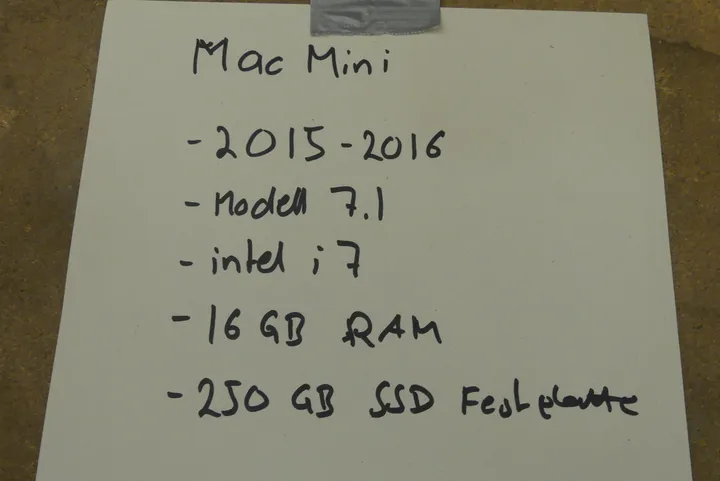 Mac Mini
- 2015 - 2016
- Modell 7.1
- intel i7
- 16 GB RAM
- 250 GB SSD Festplatte